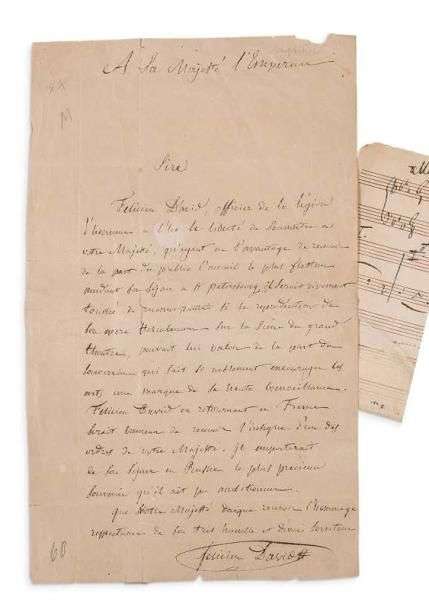 A Sa Majesté l'Empereur
Sire
Félicien David, officier de la légion
d'honneur a l'hr la liberté de soumettre a
votre Majesté, qu'ayant eu l'avantage de recevoir
de la part du public l'accueil le plus flatteur
pendant son séjour a St petersbourg, il serait vivement
de la reproduction de
son opéra Herculanum sur la scène du grand
théatre, pouvait lui valoir de la part du
souverain qui sait si noblement encourager les
arts, une marque de sa haute bienveillance.
Félicien David en retournant en France
serait heureux de recevoir l'insigne d'un des
ordres de votre Majesté. Il emporterait
de son séjour en Russie le plus précieux
souvenir qu'il ait pu ambitionner.
que Votre Majesté daigne recevoir l'hommage
respectueux de son très humble et dévoué serviteur
félicien David
60